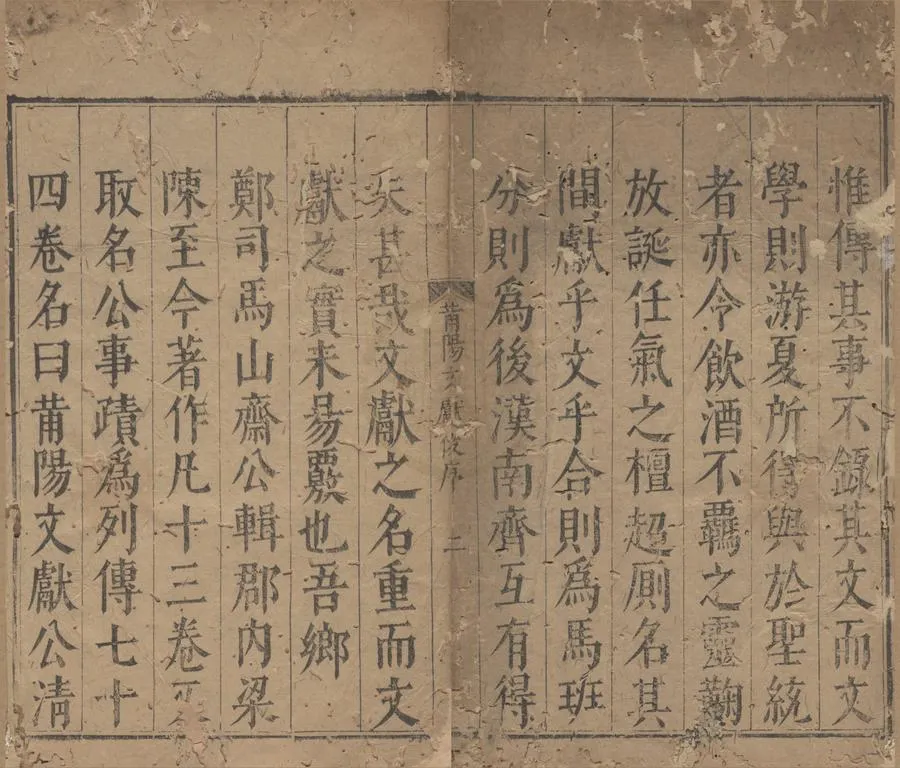 惟傳其事不錄其文而文
學則游夏所得與於聖統
者亦令飲酒不羈之靈鞠
放誕任氣之檀超厠名其
間獻乎文乎合則爲馬班
分則爲後漢南齊互有得
莆陽文獻後序 二
失甚哉文獻之名重而文
獻之實未易覈也吾鄉
鄭司馬山齋公輯郡內梁
陳至今著作凡十三卷
取名公事蹟爲列傳七十
四卷名曰莆陽文獻公清